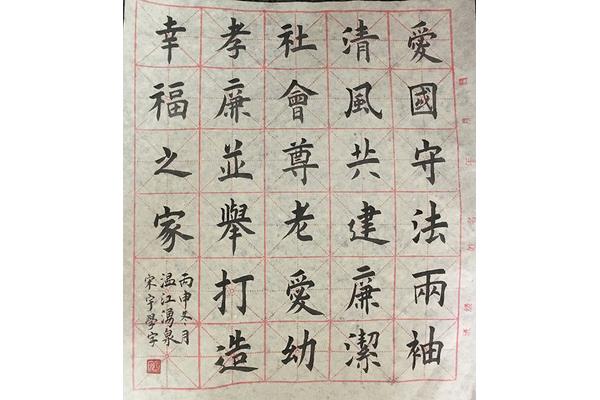 愛國守法兩袖
清風共建廉潔
社會尊老愛幼
孝廉並舉打造
幸福之家
丙申冬月
温江湧泉
宋宇學字